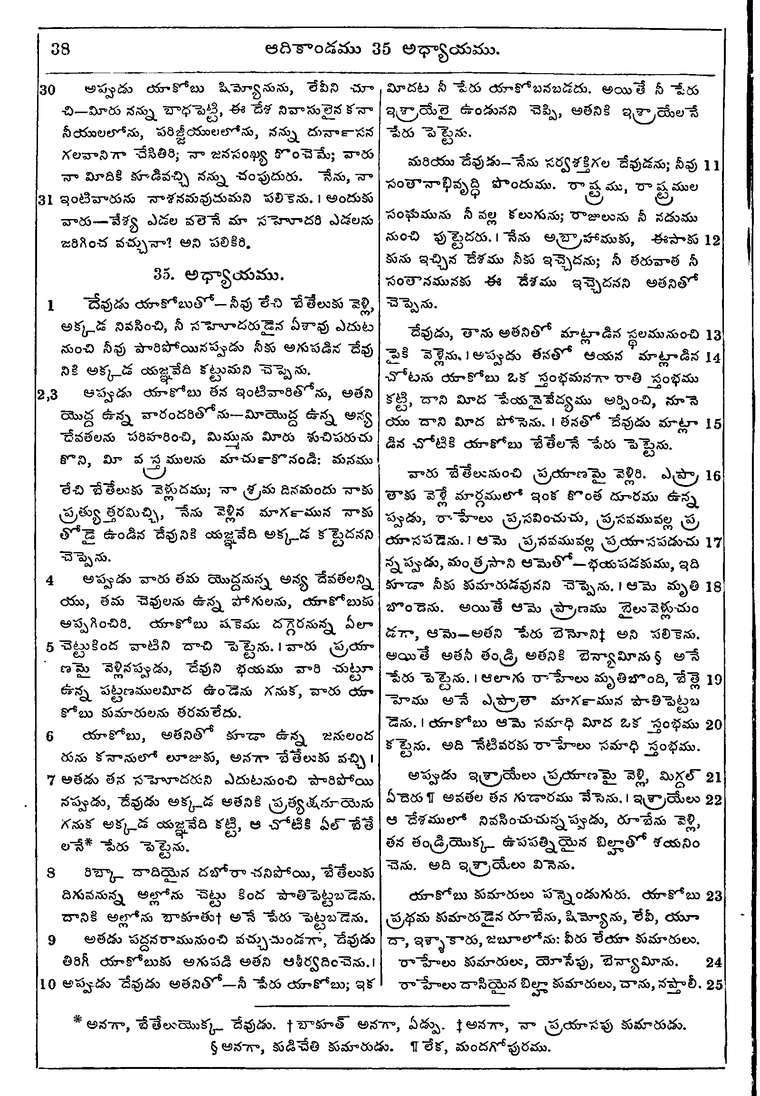 38 ఆదికాండము 35 అధ్యాయము.
30 అప్పుడు యాకోబు షిమ్యోనును, లేవీని చూ
చి—మీరు నన్ను బాధపెట్టి, ఈ దేశ నివాసులైన కనా
నీయులలోను, పరిజ్జీయులలోను, నన్ను దుర్వాసన
గలవానిగా చేసితిరి; నా జనసంఖ్య కొంచెమే; వారు
నా మీదికి కూడివచ్చి నన్ను చంపుదురు. నేను, నా
31 ఇంటివారును నాశనమవుదుమని పలికెను. । అందుకు
వారు—వేశ్య ఎడల వలెనే మా సహోదరి ఎడలను
జరిగించ వచ్చునా? అని పలికిరి.
35. అధ్యాయము.
1 దేవుడు యాకోబుతో—నీవు లేచి బేతేలుకు వెళ్లి,
అక్కడ నివసించి, నీ సహోదరుడైన ఏశావు ఎదుట
నుంచి నీవు పారిపోయినప్పుడు నీకు అగుపడిన దేవు
నికి అక్కడ యజ్ఞవేది కట్టుమని చెప్పెను.
2,3 అప్పుడు యాకోబు తన ఇంటివారితోను, అతని
యొద్ద ఉన్న వారందరితోను—మీయొద్ద ఉన్న అన్య
దేవతలను పరిహరించి, మిమ్మును మీరు శుచిపరుచు
కొని, మీ వస్త్రములను మార్చుకొనండి: మనము
లేచి బేతేలుకు వెళ్లుదము; నా శ్రమ దినమందు నాకు
ప్రత్యుత్తరమిచ్చి, నేను వెళ్లిన మార్గమున నాకు
తోడై ఉండిన దేవునికి యజ్ఞవేది అక్కడ కట్టెదనని
చెప్పెను.
4 అప్పుడు వారు తమ యొద్దనున్న అన్య దేవతలన్ని
యు, తమ చెవులను ఉన్న పోగులను, యాకోబుకు
అప్పగించిరి. యాకోబు షకెము దగ్గెరనున్న ఏలా
5 చెట్టుకింద వాటిని దాచి పెట్టెను. । వారు ప్రయా
ణమై వెళ్లినప్పుడు, దేవుని భయము వారి చుట్టూ
ఉన్న పట్టణములమీద ఉండెను గనుక, వారు యా
కోబు కుమారులను తరమలేదు.
6 యాకోబు, అతనితో కూడా ఉన్న జనులంద
రును కనానులో లూజుకు, అనగా బేతేలుకు వచ్చి ।
7 అతడు తన సహోదరుని ఎదుటనుంచి పారిపోయి
నప్పుడు, దేవుడు అక్కడ అతనికి ప్రత్యక్షమాయెను
గనుక అక్కడ యజ్ఞవేది కట్టి, ఆ చోటికి ఏల్ బేతే
లనే* పేరు పెట్టెను.
8 రిబ్కా దాదియైన దబోరా చనిపోయి, బేతేలుకు
దిగువనున్న అల్లోను చెట్టు కింద పాతిపెట్టబడెను.
దానికి అల్లోను బాకూతు† అనే పేరు పెట్టబడెను.
9 అతడు పద్దనరామునుంచి వచ్చుచుండగా, దేవుడు
తిరిగీ యాకోబుకు అగుపడి అతని ఆశీర్వదించెను. ।
10 అప్పుడు దేవుడు అతనితో—నీ పేరు యాకోబు; ఇక
మీదట నీ పేరు యాకోబనబడదు. అయితే నీ పేరు
ఇశ్రాయేలై ఉండునని చెప్పి, అతనికి ఇశ్రాయేలనే
పేరు పెట్టెను.
మరియు దేవుడు—నేను సర్వశక్తిగల దేవుడను; నీవు 11
సంతానాభివృద్ధి పొందుము. రాష్ట్రము, రాష్ట్రముల
సంఘమును నీ వల్ల కలుగును; రాజులును నీ నడుము
నుంచి పుట్టెదరు. । నేను అబ్రాహాముకు, ఈసాకు 12
కును ఇచ్చిన దేశము నీకు ఇచ్చెదను; నీ తరువాత నీ
సంతానమునకు ఈ దేశము ఇచ్చెదనని అతనితో
చెప్పెను.
దేవుడు, తాను అతనితో మాట్లాడిన స్థలమునుంచి 13
పైకి వెళ్లెను. । అప్పుడు తనతో ఆయన మాట్లాడిన 14
చోటను యాకోబు ఒక స్తంభమనగా రాతి స్తంభము
కట్టి, దాని మీద పేయనైవేద్యము అర్పించి, నూనె
యు దాని మీద పోసెను. । తనతో దేవుడు మాట్లా 15
డిన చోటికి యాకోబు బేతేలనే పేరు పెట్టెను.
వారు బేతేలునుంచి ప్రయాణమై వెళ్లిరి. ఎఫ్రా 16
తాకు వెళ్లే మార్గములో ఇంక కొంత దూరము ఉన్న
ప్పుడు, రాహేలు ప్రసవించుచు, ప్రసవమువల్ల ప్ర
యాసపడెను. । ఆమె ప్రసవమువల్ల ప్రయాసపడుచు 17
న్నప్పుడు, మంత్రసాని ఆమెతో—భయపడకుము, ఇది
కూడా నీకు కుమారుడవునని చెప్పెను. । ఆమె మృతి 18
బొందెను. అయితే ఆమె ప్రాణము బైలువెళ్లుచుం
డగా, ఆమె—అతని పేరు బెనోని‡ అని పలికెను.
అయితే అతనీ తండ్రి అతనికి బెన్యామీను§ అనే
పేరు పెట్టెను. । ఆలాగు రాహేలు మృతిబొంది, బేత్లె 19
హెము అనే ఎఫ్రాతా మార్గమున పాతిపెట్టబ
డెను. । యాకోబు ఆమె సమాధి మీద ఒక స్తంభము 20
కట్టెను. అది నేటివరకు రాహేలు సమాధి స్తంభము.
అప్పుడు ఇశ్రాయేలు ప్రయాణమై వెళ్లి, మిగ్దల్ 21
ఏదెరు¶ అవతల తన గుడారము వేసెను. । ఇశ్రాయేలు 22
ఆ దేశములో నివసించుచున్నప్పుడు, రూబేను వెళ్లి,
తన తండ్రియొక్క ఉపపత్నియైన బిల్హాతో శయనిం
చెను. అది ఇశ్రాయేలు వినెను.
యాకోబు కుమారులు పన్నెండుగురు. యాకోబు 23
ప్రథమ కుమారుడైన రూబేను, షిమ్యోను, లేవీ, యూ
దా, ఇశ్శాకారు, జబూలోను: వీరు లేయా కుమారులు.
రాహేలు కుమారులు, యోసేపు, బెన్యామీను. 24
రాహేలు దాసియైన బిల్హా కుమారులు, దాను, నఫ్తాలీ. 25
* అనగా, బేతేలుయొక్క దేవుడు. † బాకూత్ అనగా, ఏడ్పు. ‡ అనగా, నా ప్రయాసపు కుమారుడు.
§ అనగా, కుడిచేతి కుమారుడు. ¶ లేక, మందగోపురము.